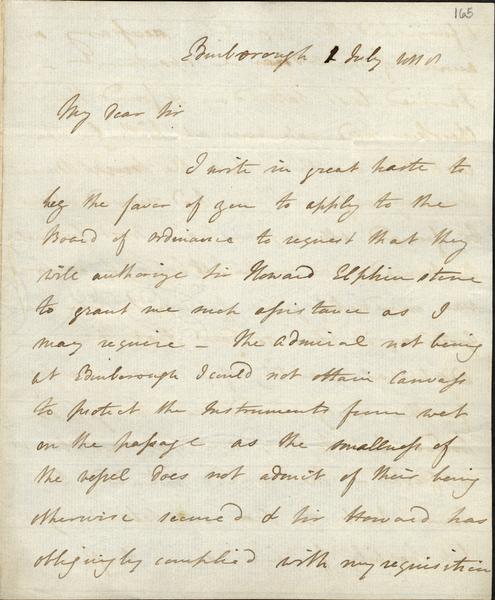 165
Edinborough 1 July 1818
My dear Sir
I write in great haste to
beg the favor of you to apply to the
Board of ordinance to request that they
will authorize Sir Howard Elphinstone
to grant me such assistance as I
may require – the Admiral not being
at Edinborough I could not obtain Canvass
to protect the Instruments from wet
on the passage as the smallness of
the vessel does not admit of their being
otherwise secured & Sir Howard has
obligingly complied with my requisition